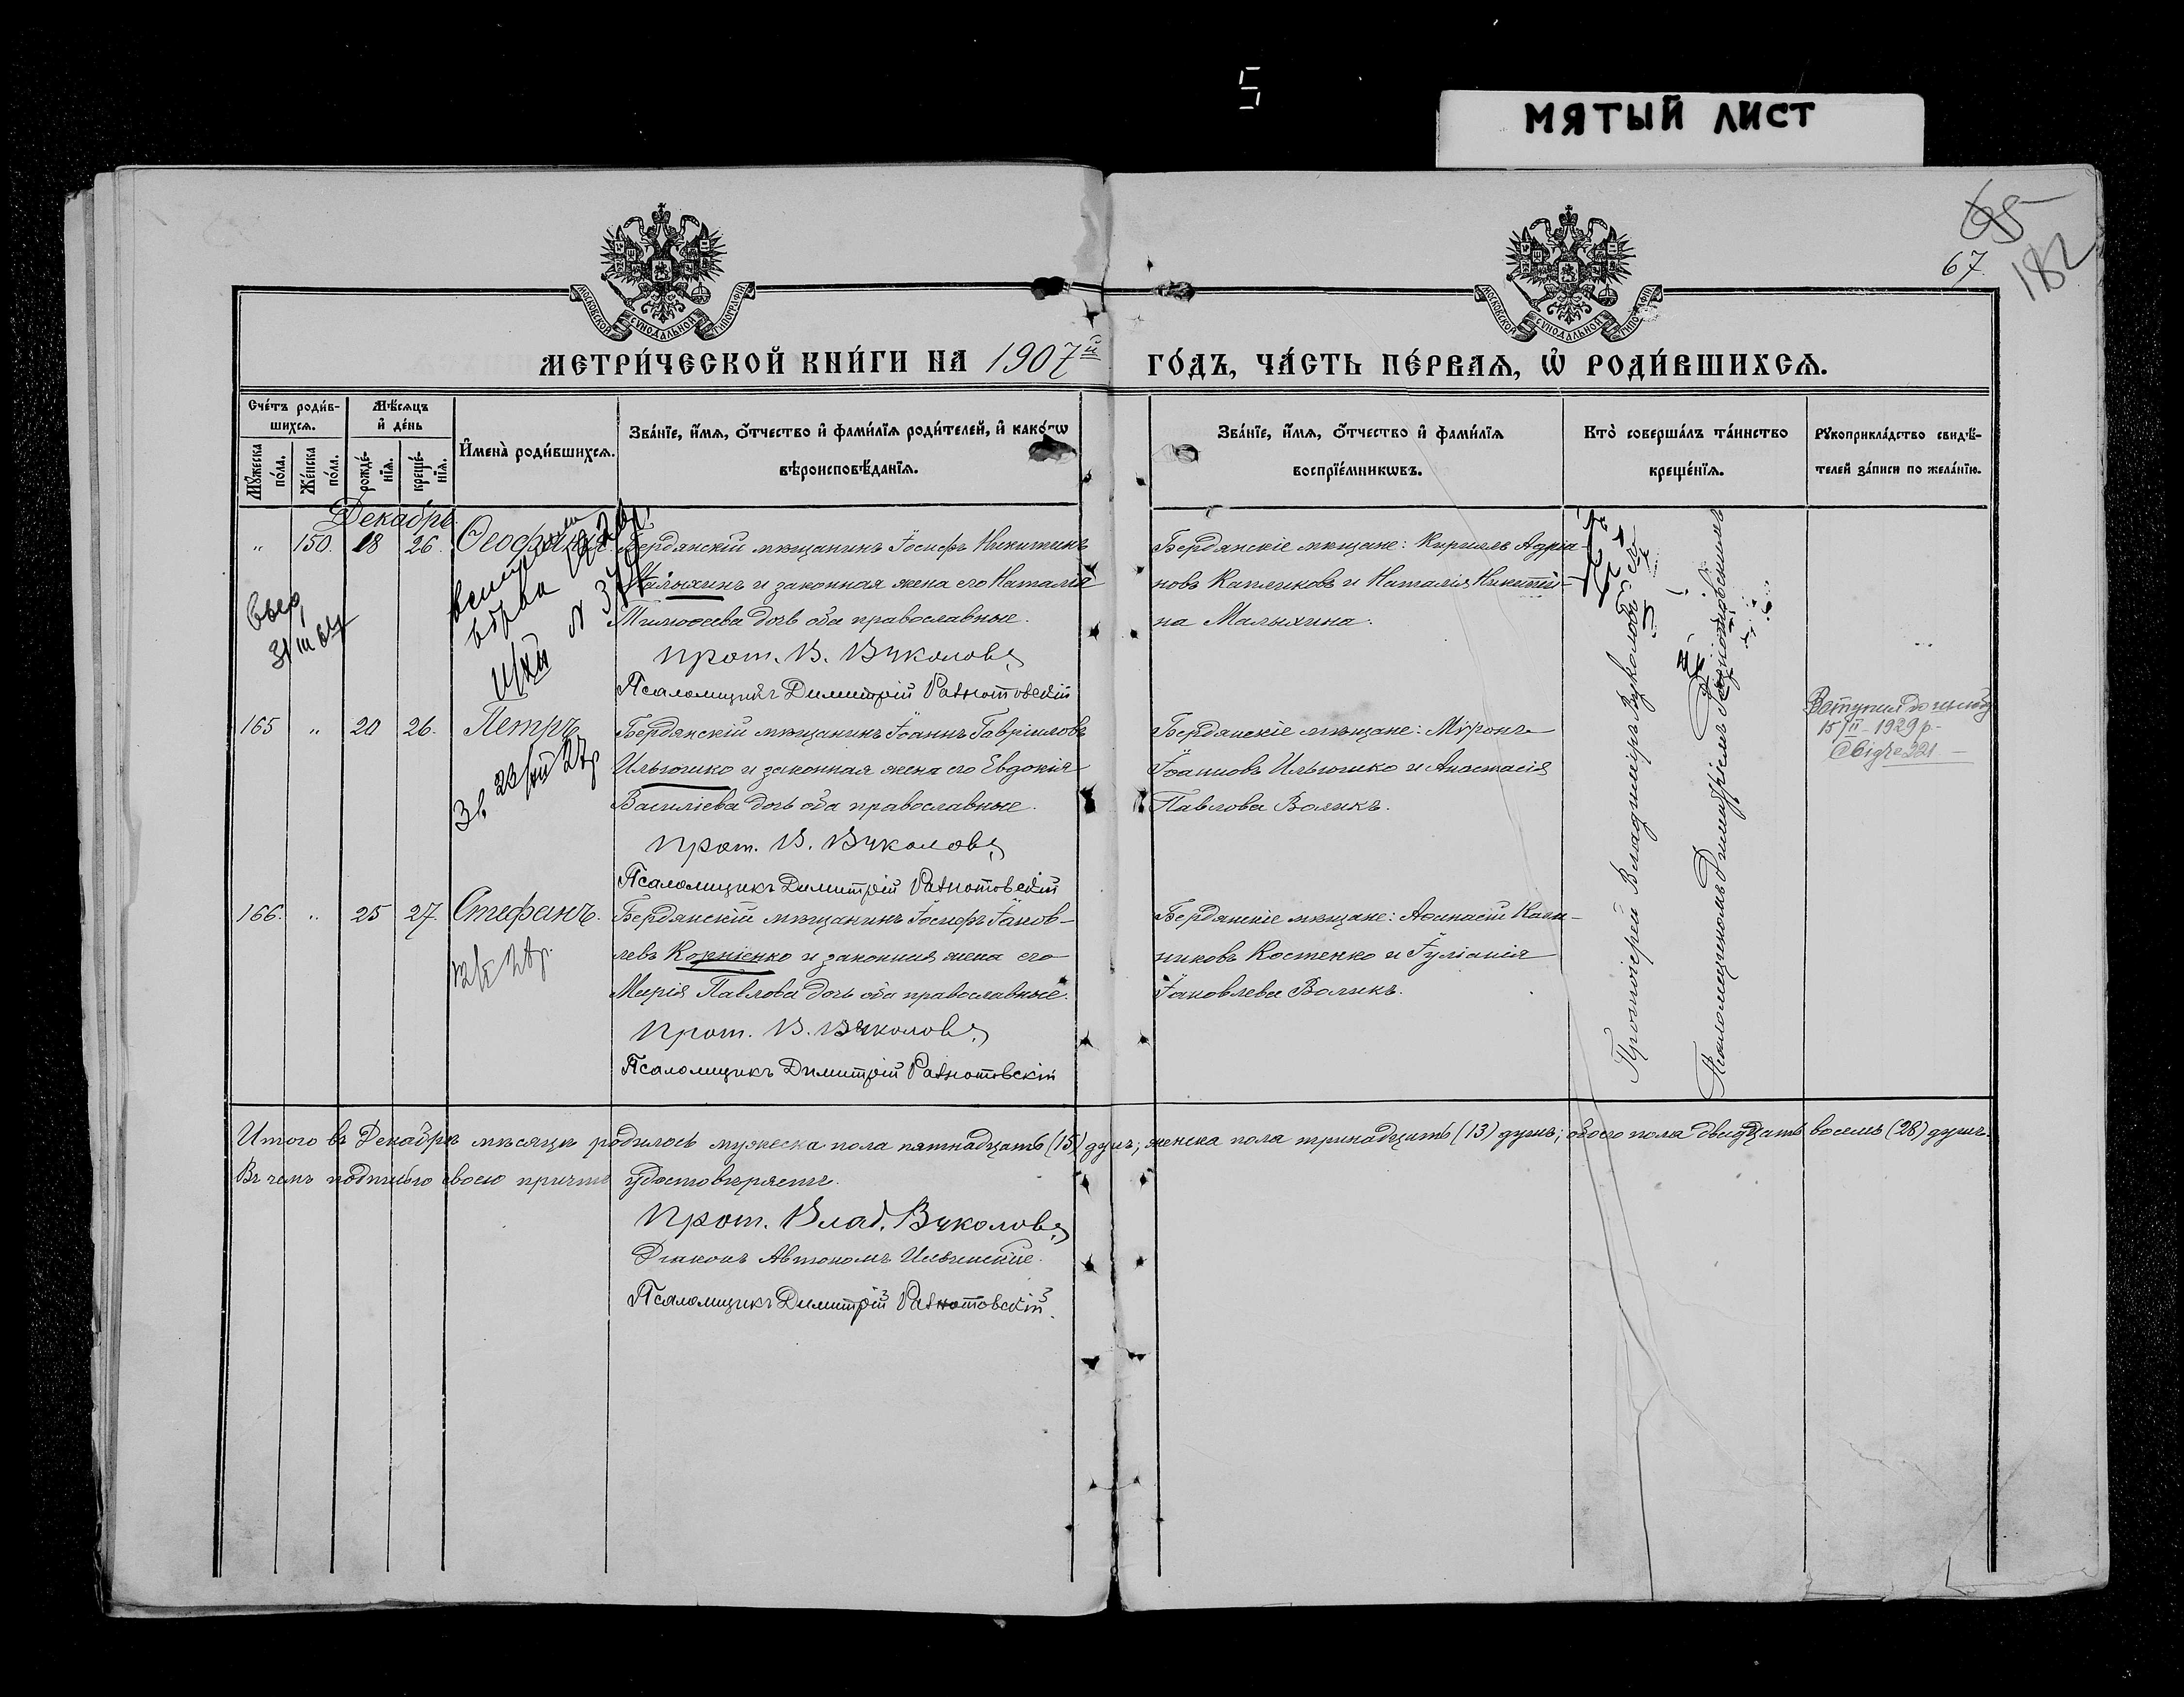 5
МЯТЫЙ ЛИСТ
65
67.
182
МОСКОВСКОЙ СУНОДАЛЬНОЙ ТИПОГРАФІИ
МОСКОВСКОЙ СУНОДАЛЬНОЙ ТИПОГРАФІИ
МЕТРИ́ЧЕСКОЙ КНИ́ГИ НА 1907й ГО́ДЪ, ЧА́СТЬ ПЕ́РВАѦ, Ѡ҆ РОДИ́ВШИХСѦ.
Сче́тъ роди́в-
шихсѧ.
Мѣ́сѧцъ
и҆ де́нь
Мꙋ́жеска по́ла.
Же́нска по́ла.
рожде́-
нїѧ.
креще́-
нїѧ.
И҆мена̀ роди́вшихсѧ.
Зва́нїе, и҆́мѧ, ѻ҆́тчество и҆ фами́лїѧ роди́телей, и҆ како́гѡ
вѣроисповѣ́данїѧ.
Зва́нїе, и҆́мѧ, ѻ҆́тчество и҆ фами́лїѧ
воспрїе́мникѡвъ.
Кто̀ соверша́лъ та́инство
креще́нїѧ.
Рꙋкоприкла́дство свидѣ́-
телей за́писи по жела́нїю.
Декабрь.
" 150. 18 26.
Бердянскій мѣщанинъ Іосифъ Никитинъ
Малыхинъ и законная жена его Наталія
Тимоѳеева дочь оба православные.
Прот. В. Вуколовъ
Псаломщикъ Димитрій
Бердянскіе мѣщане: Кириллъ Адріа-
новъ Капликовъ и Наталія Никити-
на Малыхина.
N
31/III 64
165 " 20 26. Петръ
Бердянскій мѣщанинъ Іоаннъ Гавріиловъ
Ильюшко и законная жена его Евдокія
Василіева дочь оба православные.
Прот. В. Вуколовъ
Псаломщикъ Димитрій
Бердянскіе мѣщане: Мѵронъ
Іоанновъ Ильюшко и Анастасія
Павлова Воликъ.
15/II-1929 р-
166. " 25 27. Стефанъ.
Бердянскій мѣщанинъ Іосифъ Іаков-
левъ Корніенко и законная жена его
Марія Павлова дочь оба православные.
Прот. В. Вуколовъ
Псаломщикъ Димитрій
Бердянскіе мѣщане: Аѳанасій Кали-
никовъ Костенко и Іуліанія
Іаковлева Воликъ.
Протоіерей Владиміръ Вуколовъ съ
Псаломщикомъ Димитріемъ
Итого въ Декабрѣ мѣсяцѣ родилось мужеска пола пятнадцать (15) душъ; женска пола тринадцать (13) душъ; обоего пола двадцать восемь (28) душъ.
Въ чемъ подписью своею причтъ удостовѣряетъ.
Прот. Влад. Вуколовъ
Діаконъ Автономъ
Псаломщикъ Димитрій